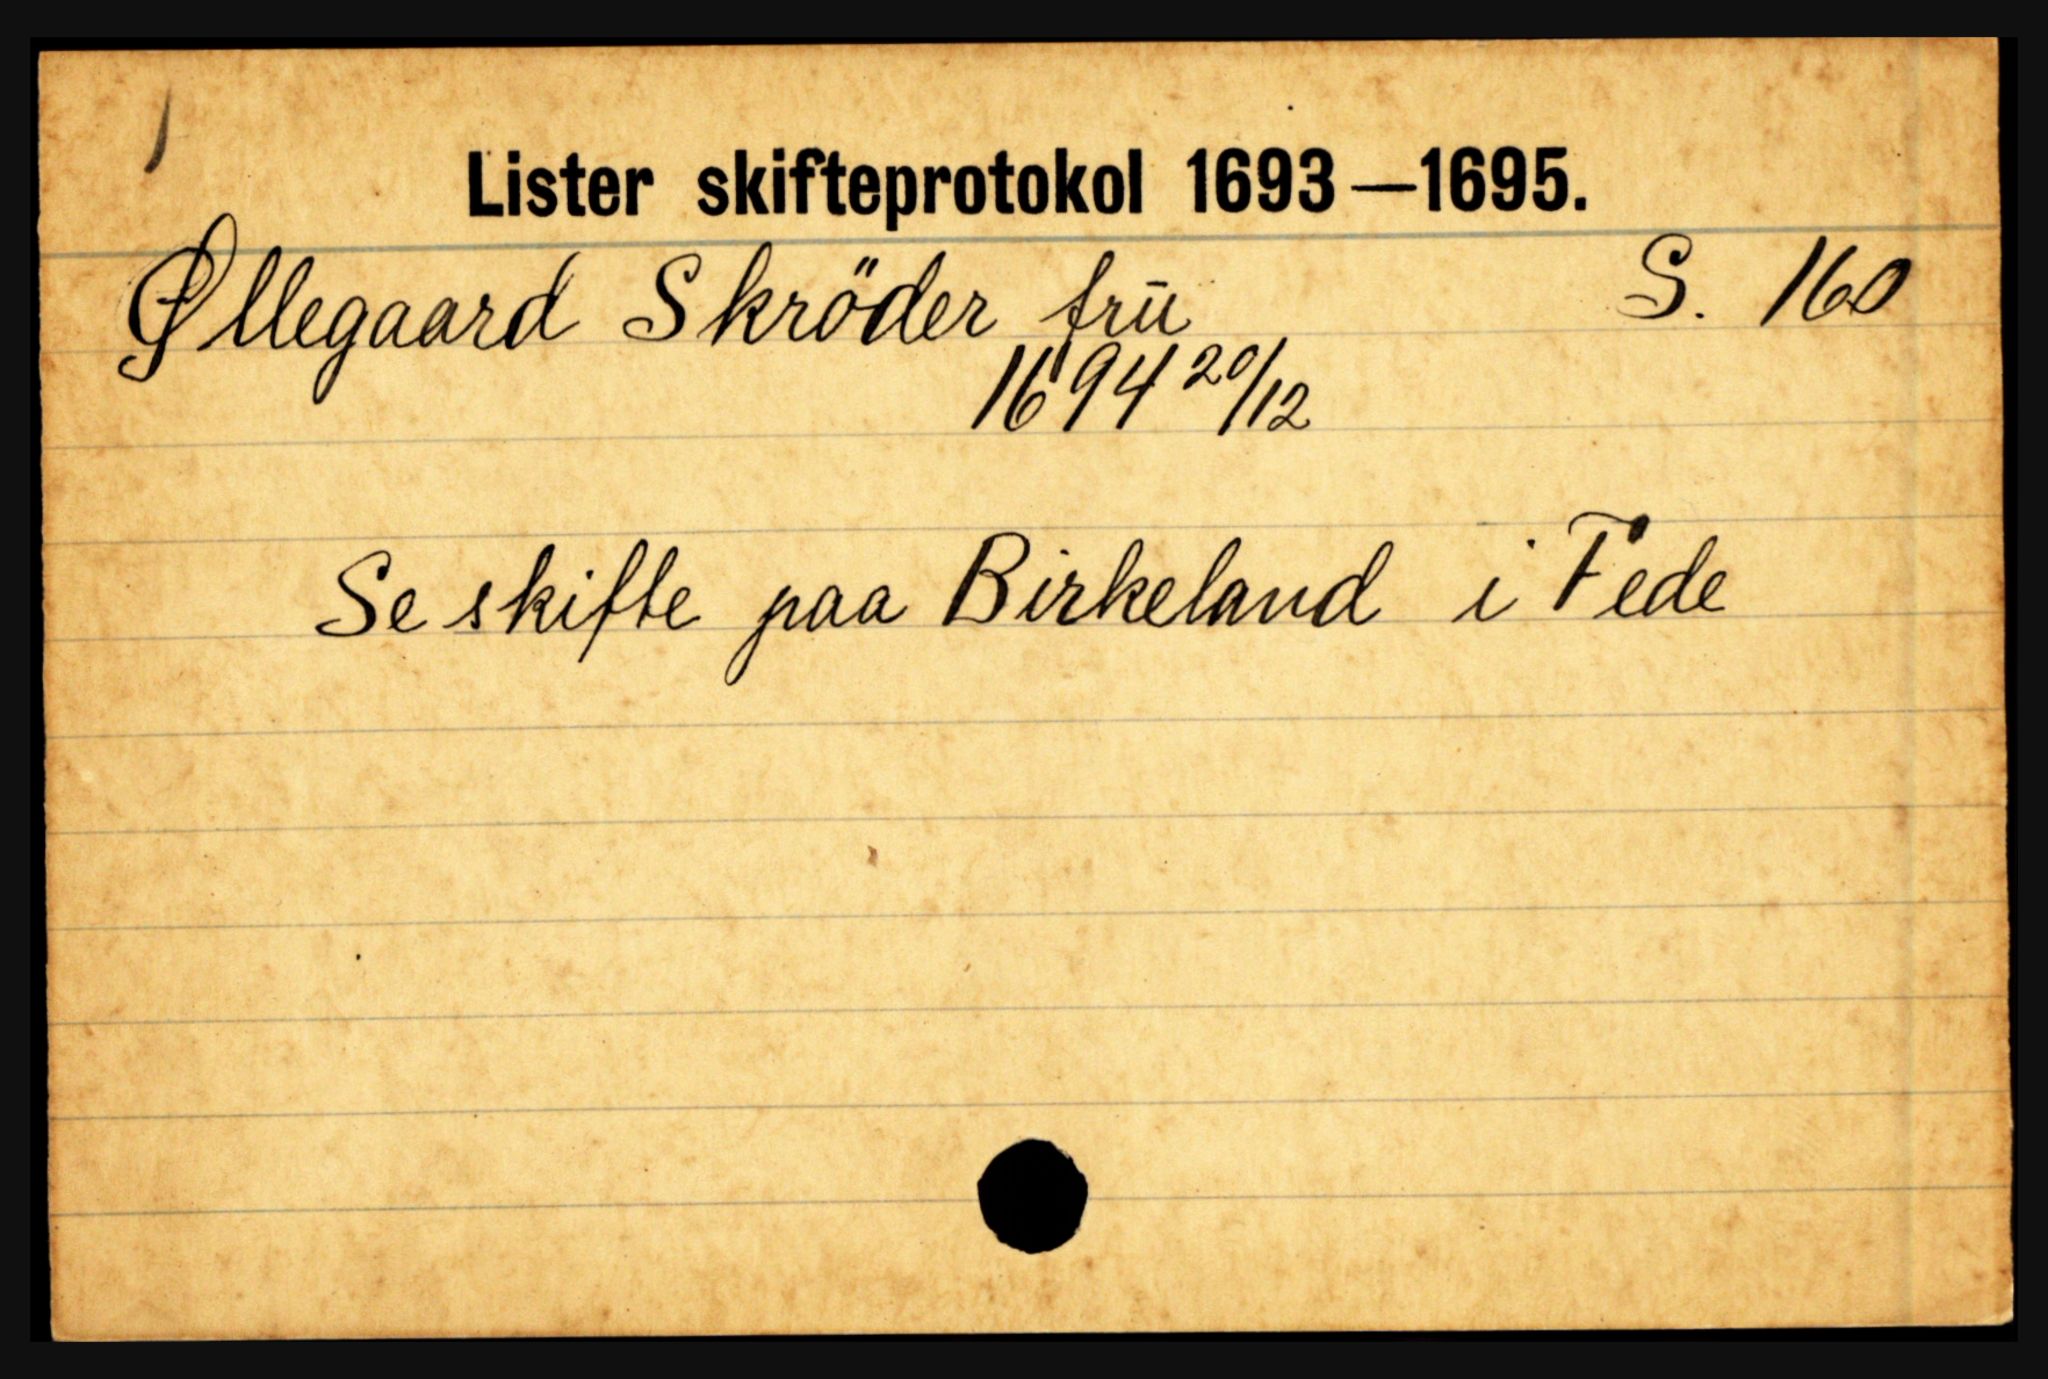 Lister skifteprotokol 1693—1695.
Øllegaard Skröder frū S. 160
1694 20/12
Se skifte paa Birkeland i Fede